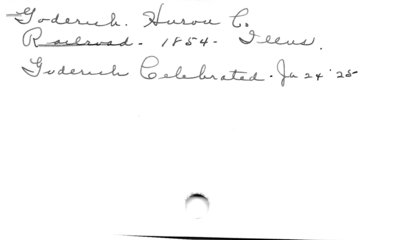 Goderich. Huron C.
Railroad. 1854. Illus.
Goderich Celebrated. Ja 24 '25